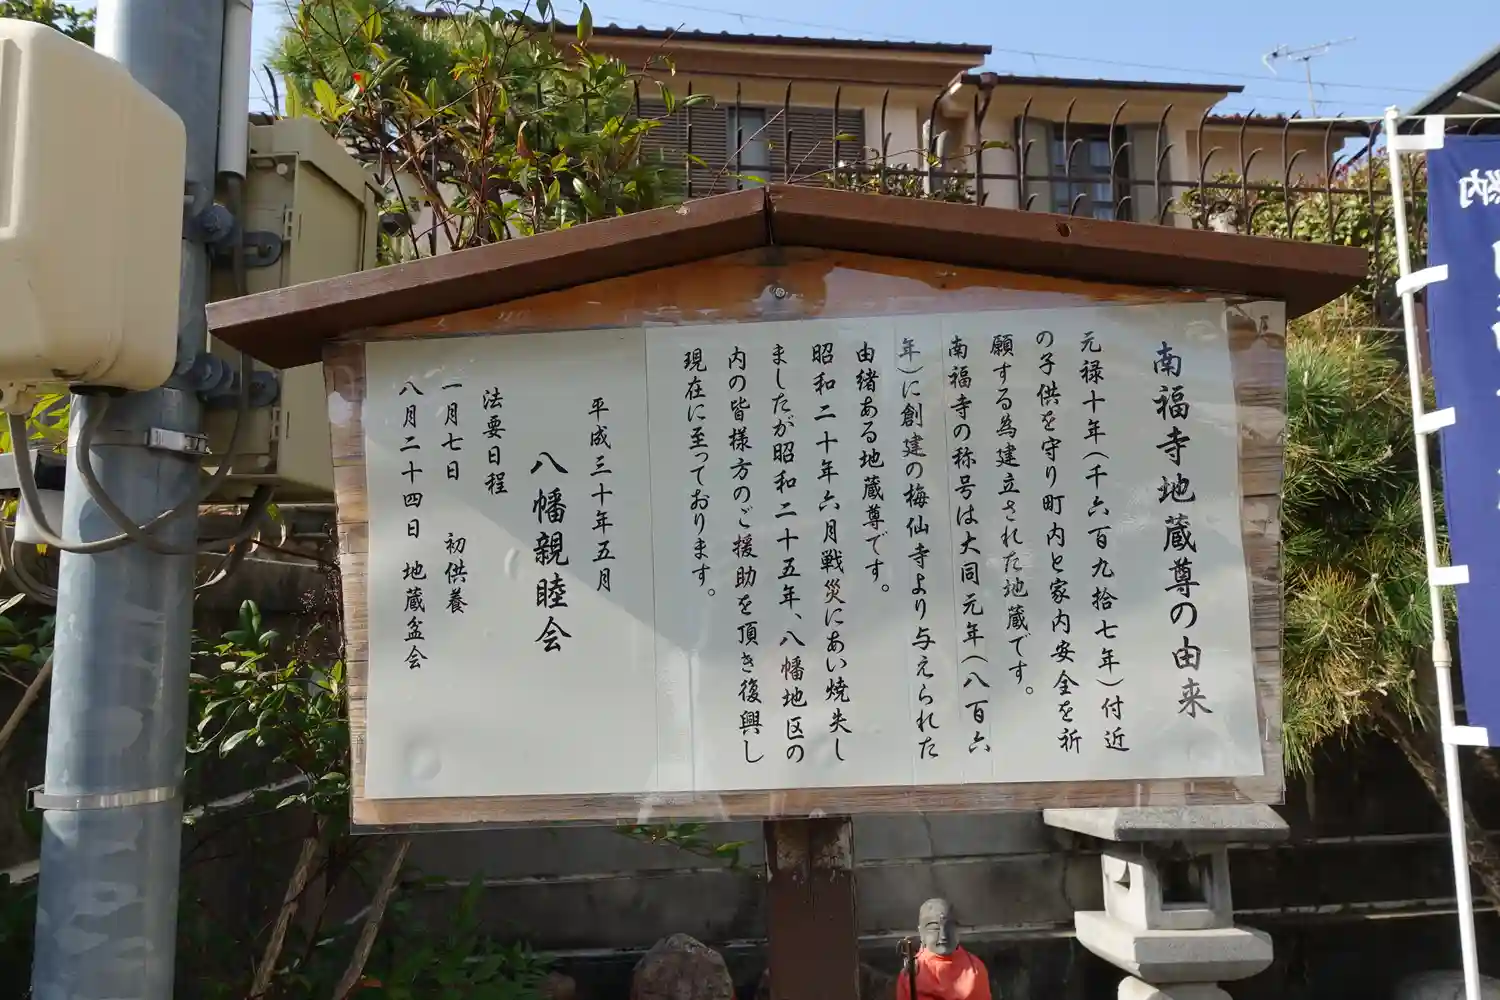 南福寺地蔵尊の由来
元禄十年(千六百九拾七年)付近
の子供を守り町内と家内安全を祈
願する為建立された地蔵です。
南福寺の称号は大同元年(八百六
年)に創建の梅仙寺より与えられた
由緒ある地蔵尊です。
昭和二十年六月戦災にあい焼失し
ましたが昭和二十五年、八幡地区の
内の皆様方のご援助を頂き復興し
現在に至っております。
平成三十年五月
八幡親睦会
法要日程
一月七日 初供養
八月二十四日 地蔵盆会